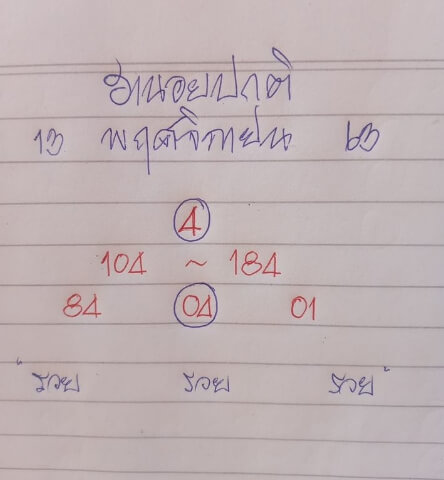 ฮานอยปกติ
13 พฤศจิกายน 63
4
104 ~ 184
84 04 01
"รวย รวย รวย"